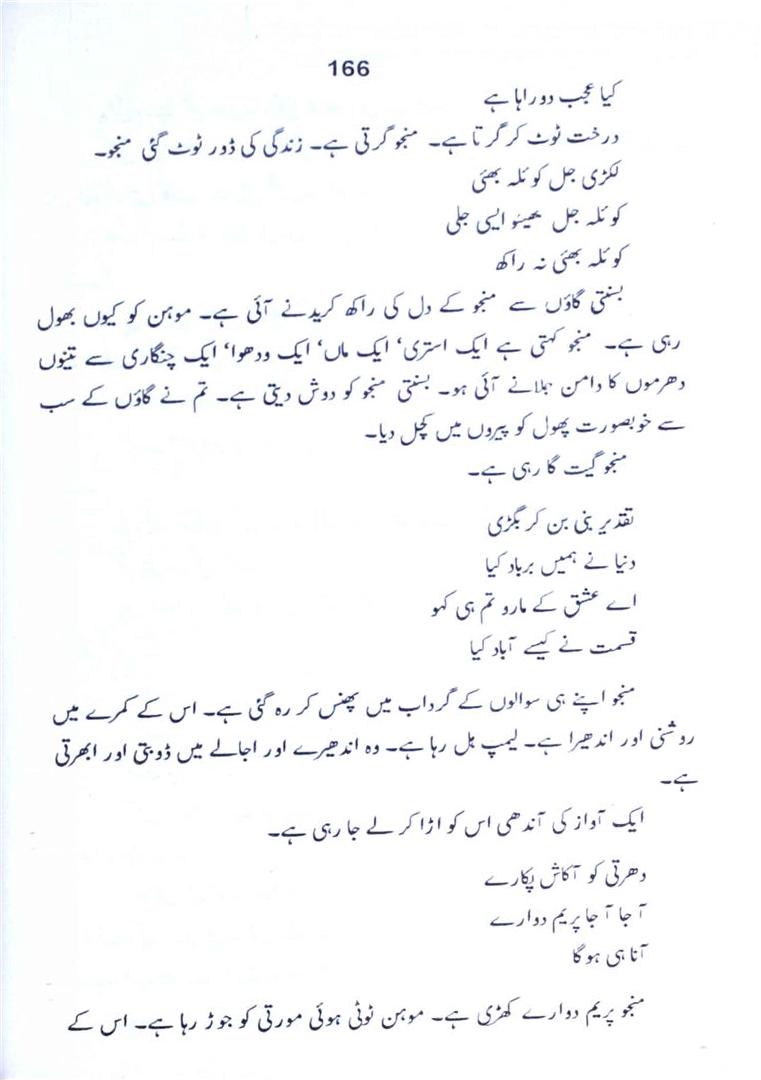 166
کیا عجب دوراہا ہے
درخت ٹوٹ کر گرتا ہے۔ منجو گرتی ہے۔ زندگی کی ڈور ٹوٹ گئی منجو۔
لکڑی جل کوئلہ بھئی
کوئلہ جل بھیئو ایسی جلی
کوئلہ بھئی نہ راکھ
بسنتی گاؤں سے منجو کے دل کی راکھ کریدنے آئی ہے۔ موہن کو کیوں بھول
رہی ہے۔ منجو کہتی ہے ایک استری‘ ایک ماں‘ ایک ودھوا‘ ایک چنگاری سے تینوں
دھرموں کا دامن جلانے آئی ہو۔ بسنتی منجو کو دوش دیتی ہے۔ تم نے گاؤں کے سب
سے خوبصورت پھول کو پیروں میں کچل دیا۔
منجو گیت گا رہی ہے۔
تقدیر بنی بن کر بگڑی
دنیا نے ہمیں برباد کیا
اے عشق کے مارو تم ہی کہو
قسمت نے کیسے آباد کیا
منجو اپنے ہی سوالوں کے گرداب میں پھنس کر رہ گئی ہے۔ اس کے کمرے میں
روشنی اور اندھیرا ہے۔ لیمپ ہل رہا ہے۔ وہ اندھیرے اور اجالے میں ڈوبتی اور ابھرتی
ہے۔
ایک آواز کی آندھی اس کو اڑا کر لے جا رہی ہے۔
دھرتی کو آکاش پکارے
آ جا آ جا پریم دوارے
آنا ہی ہو گا
منجو پریم دوارے کھڑی ہے۔ موہن ٹوٹی ہوئی مورتی کو جوڑ رہا ہے۔ اس کے